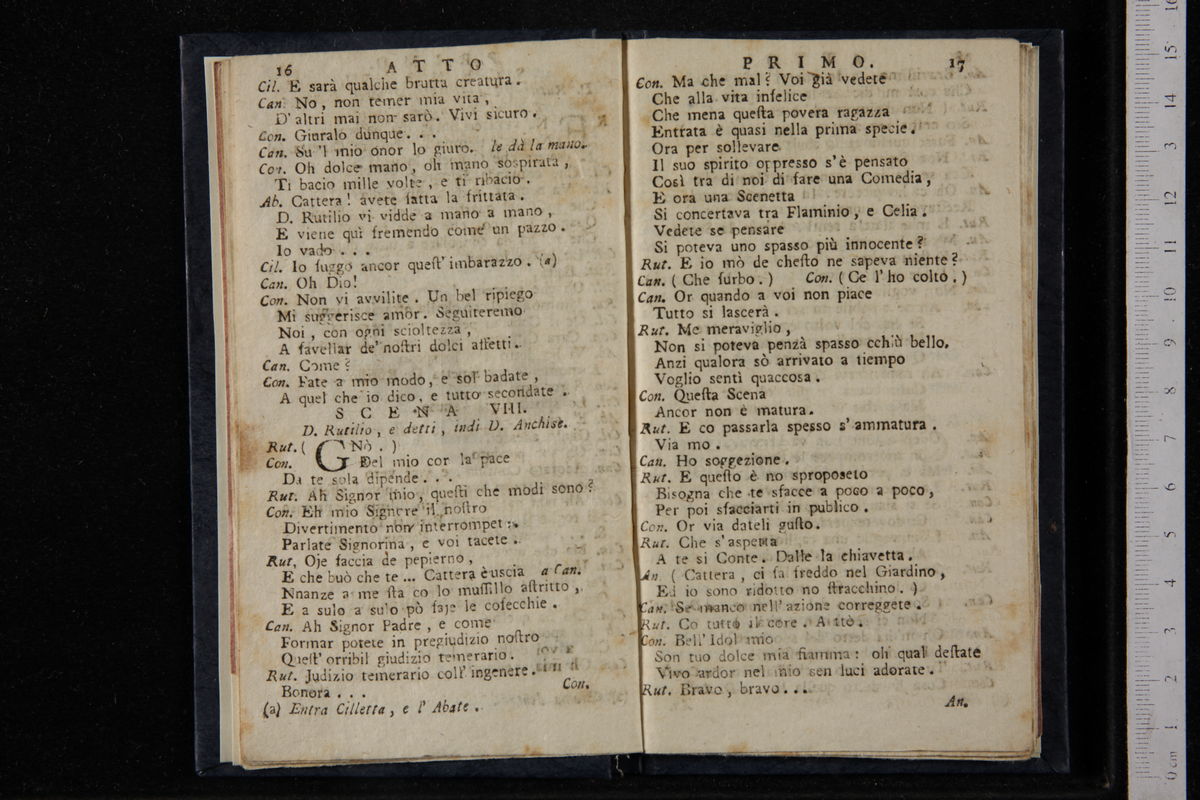 16 ATTO
Cil. E sarà qualche brutta creatura.
Can. No, non temer mia vita,
D'altri mai non sarò. Vivi sicuro.
Con. Giuralo dunque. . .
Can. Su 'l mio onor lo giuro. le dà la mano.
Con. Oh dolce mano, oh mano sospirata,
Ti bacio mille volte, e ti ribacio.
Ab. Cattera! avete fatta la frittata.
D. Rutilio vi vidde a mano a mano,
E viene quì fremendo come un pazzo.
Io vado . . .
Cil. Io fuggo ancor queſt' imbarazzo. (a)
Can. Oh Dio!
Con. Non vi avvilite. Un bel ripiego
Mi suggerisce amor. Seguiteremo
Noi, con ogni scioltezza,
A favellar de' noſtri dolci affetti.
Can. Come?
Con. Fate a mio modo, e sol badate,
A quel che io dico, e tutto secondate.
SCENA VIII.
D. Rutilio, e detti, indi D. Anchise.
Rut. ( GNò. )
Con. Del mio cor la pace
Da te sola dipende. . .
Rut. Ah Signor mio, queſti che modi sono?
Con. Eh mio Signore il noſtro
Divertimento non interrompete.
Parlate Signorina, e voi tacete.
Rut. Oje faccia de pepierno,
E che buò che te ... Cattera è uscia a Can.
Nnanze a me ſta co lo muſſillo aſtritto,
E a sulo a sulo pò faje le cofecchie.
Can. Ah Signor Padre, e come
Formar potete in pregiudizio noſtro
Queſt' orribil giudizio temerario.
Rut. Judizio temerario coll' ingenere.
Bonora . . .
Con.
(a) Entra Cilletta, e l' Abate.
PRIMO. 17
Con. Ma che mal? Voi già vedete
Che alla vita infelice
Che mena queſta povera ragazza
Entrata è quasi nella prima specie.
Ora per sollevare
Il suo spirito oppresso s'è pensato
Così tra di noi di fare una Comedia,
E ora una Scenetta
Si concertava tra Flaminio, e Celia.
Vedete se pensare
Si poteva uno spasso più innocente?
Rut. E io mò de cheſto ne sapeva niente?
Can. ( Che furbo. ) Con. ( Ce l' ho colto. )
Can. Or quando a voi non piace
Tutto si lascerà.
Rut. Me meraviglio,
Non si poteva penzà spasso cchiù bello.
Anzi qualora sò arrivato a tiempo
Voglio sentì quaccosa.
Con. Queſta Scena
Ancor non è matura.
Rut. E co passarla spesso s' ammatura.
Via mo.
Can. Ho soggezione.
Rut. E queſto è no sproposeto
Bisogna che te sfacce a poco a poco,
Per poi sfacciarti in publico.
Con. Or via dateli guſto.
Rut. Che s'aspetta
A te si Conte. Dalle la chiavetta.
An. ( Cattera, ci fa freddo nel Giardino,
Ed io sono ridotto no ſtracchino. )
Can. Se manco nell' azione correggete.
Rut. Co tutto il core. Attò.
Con. Bell' Idol mio
Son tuo dolce mia fiamma: oh qual deſtate
Vivo ardor nel mio sen luci adorate.
Rut. Bravo, bravo...
An.